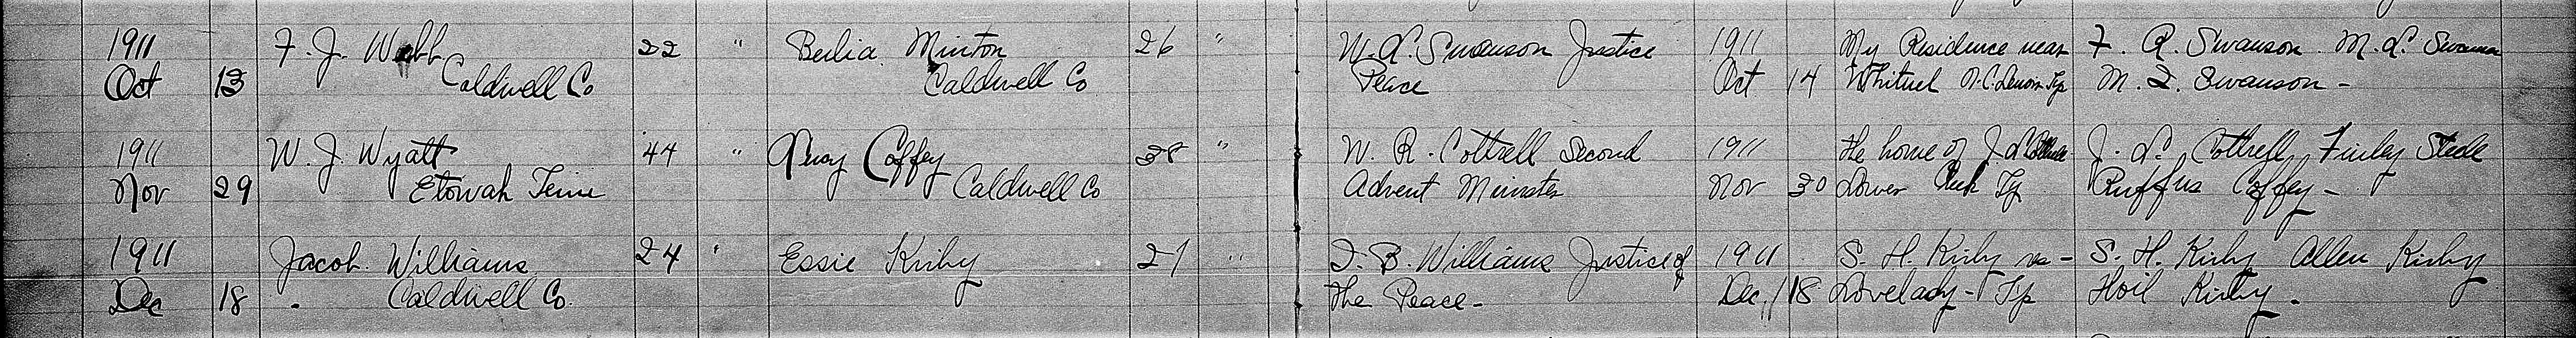 1911 F. J. Webb 22 " Beulia Minton 26 " W. L. Swanson Justice 1911 My Residence near F. R. Swanson. M. L. Swanson
Oct 13 Caldwell Co Caldwell Co Peace Oct 14 Whitnel N.C. Lenoir Tp M. I. Swanson -
1911 W. J. Wyatt 44 " Coffey 38 " W. R. Cottrell Second 1911 The home of J. L. Cottrell J. L. Cottrell Finley Steele
Nov 29 Etowah Tenn Caldwell Co Advent Minister Nov 30 Lower Creek Tp Ruffus Coffey -
1911 Jacob Williams 24 " Essie Kirby 21 " I. B. Williams Justice of 1911 S. H. Kirby - S. H. Kirby Allen Kirby
Dec 18 - Caldwell Co. the Peace - Dec. 18 Lovelady - Tp Hoil Kirby -